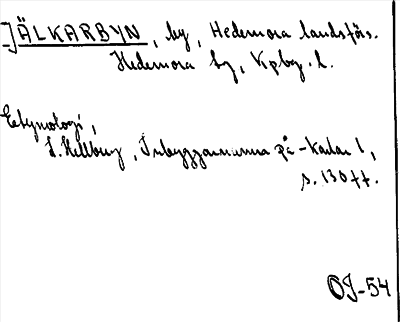 JÄLKARBYN, by, Hedemora landsförs.
Hedemora by, Kpbg. l.
Etymologi,
L. Hellberg, Inbyggarnamn på -karlar 1,
s. 130 ff.
OJ-54